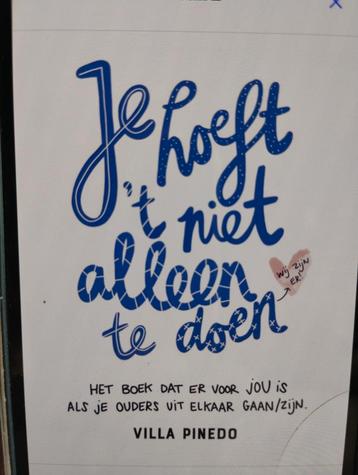 Je hoeft
't niet
alleen
te doen
Wij zijn
er!
HET BOEK DAT ER VOOR JOU is
ALS je OUDERS UIT ELKAAR GAAN/ZIJN.
VILLA PINEDO